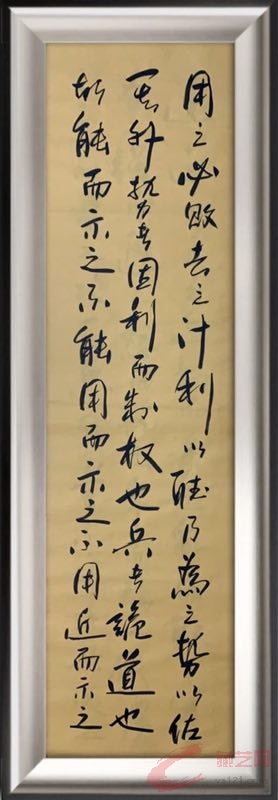 用之必敗去之计利以聽乃為之勢以佐
其外势者因利而制权也兵者詭道也
故能而示之不能用而示之不用近而示之